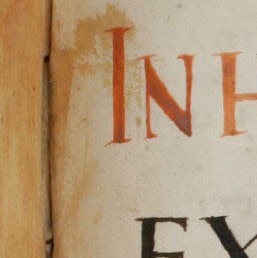 INH
EX